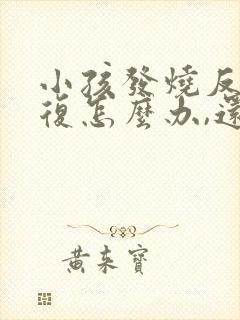 小孩發燒反
復怎麼办,還
黃来寶